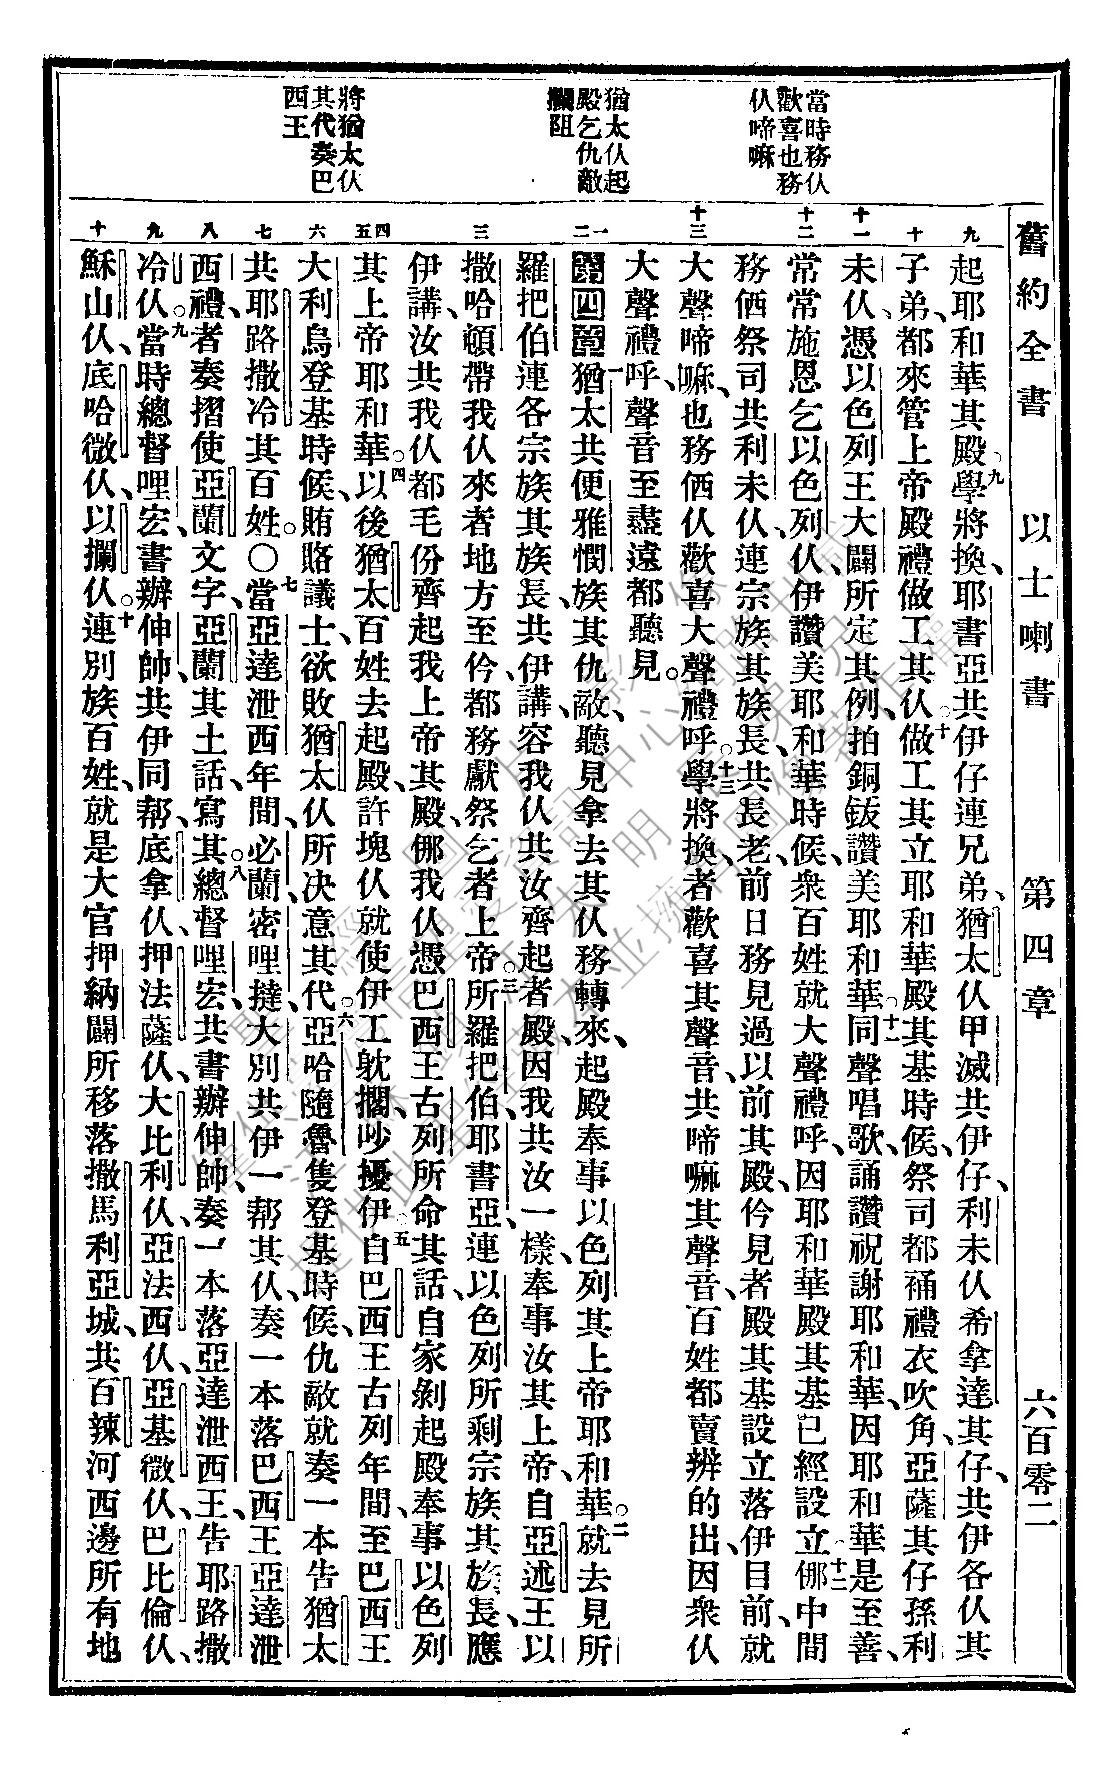 舊約全書　以士喇書　第四章　六百零二
當時務仈
歡喜也務
仈啼嘛
猶太仈起
殿乞仇敵
攔阻
將猶太仈
其代奏巴
西王
九
十
十一
十二
十三
一
二
三
四
五
六
七
八
九
十
起耶和華其殿學將換、耶書亞共伊仔連兄弟、猶太仈甲滅共伊仔、利未仈希拿達其仔、共伊各仈其
子弟、都來管上帝殿禮做工其仈。十做工其立耶和華殿其基時候、祭司都𥘵禮衣吹角、亞薩其仔孫利
未仈、憑以色列王大闢所定其例、拍銅鈸讚美耶和華。十一同聲唱歌、誦讚祝謝耶和華、因耶和華是至善、
常常施恩乞以色列仈、伊讚美耶和華時候、衆百姓就大聲禮呼、因耶和華殿其基已經設立。十二㑚中間
務伵祭司共利未仈、連宗族其族長、共長老、前日務見過以前其殿、仱見者殿其基設立落伊目前、就
大聲啼嘛、也務伵仈歡喜大聲禮呼。十三學將換、者歡喜其聲音、共啼嘛其聲音、百姓都賣辨的出、因衆仈
大聲禮呼、聲音至盡遠都聽見。
第四章 一猶太共便雅憫族其仇敵、聽見拿去其仈務轉來、起殿奉事以色列其上帝耶和華。二就去見所
羅把伯連各宗族其族長、共伊講、容我仈共汝齊起者殿、因我共汝一樣、奉事汝其上帝、自亞述王以
撒哈頓帶我仈來者地方至仱、都務獻祭乞者上帝。三所羅把伯、耶書亞、連以色列所剩宗族其族長、應
伊講、汝共我仈都毛份齊起我上帝其殿、㑚我仈憑巴西王古列所命其話、自家剝起殿奉事以色列
其上帝耶和華。四以後猶太百姓去起殿、許塊仈就使伊工躭擱、吵擾伊。五自巴西王古列年間、至巴西王
大利烏登基時候、賄賂議士、欲敗猶太仈所决意其代。六亞哈隨魯隻登基時候、仇敵就奏一本告猶太
共耶路撒冷其百姓。○七當亞達泄西年間、必蘭密哩撻大別共伊一帮其仈、奏一本落巴西王亞達泄
西禮、者奏摺使亞蘭文字、亞蘭其土話寫其。八總督哩宏共書辦伸帥、奏一本落亞達泄西王、告耶路撒
冷仈。九當時總督哩宏、書辦伸帥、共伊同帮、底拿仈、押法薩仈、大比利仈、亞法西仈、亞基微仈、巴比倫仈、
穌山仈、底哈微仈、以攔仈。十連別族百姓、就是大官押納闢所移落撒馬利亞城、共百辣河西邊所有地